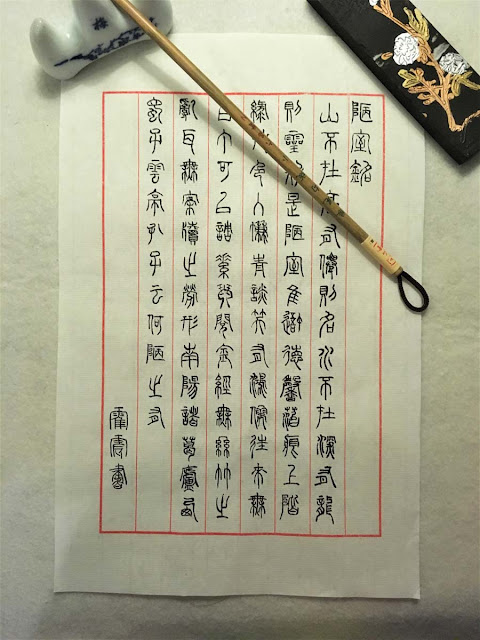 陋室銘
山不在高有僊則名水不在深有龍
則靈斯是陋室隹吾德馨苔痕上階
綠草色入簾青談笑有鴻儒往來無
白丁可以調素琴閱金經無絲竹之
亂耳無案牘之勞形南陽諸葛廬西
蜀子雲亭孔子云何陋之有
書